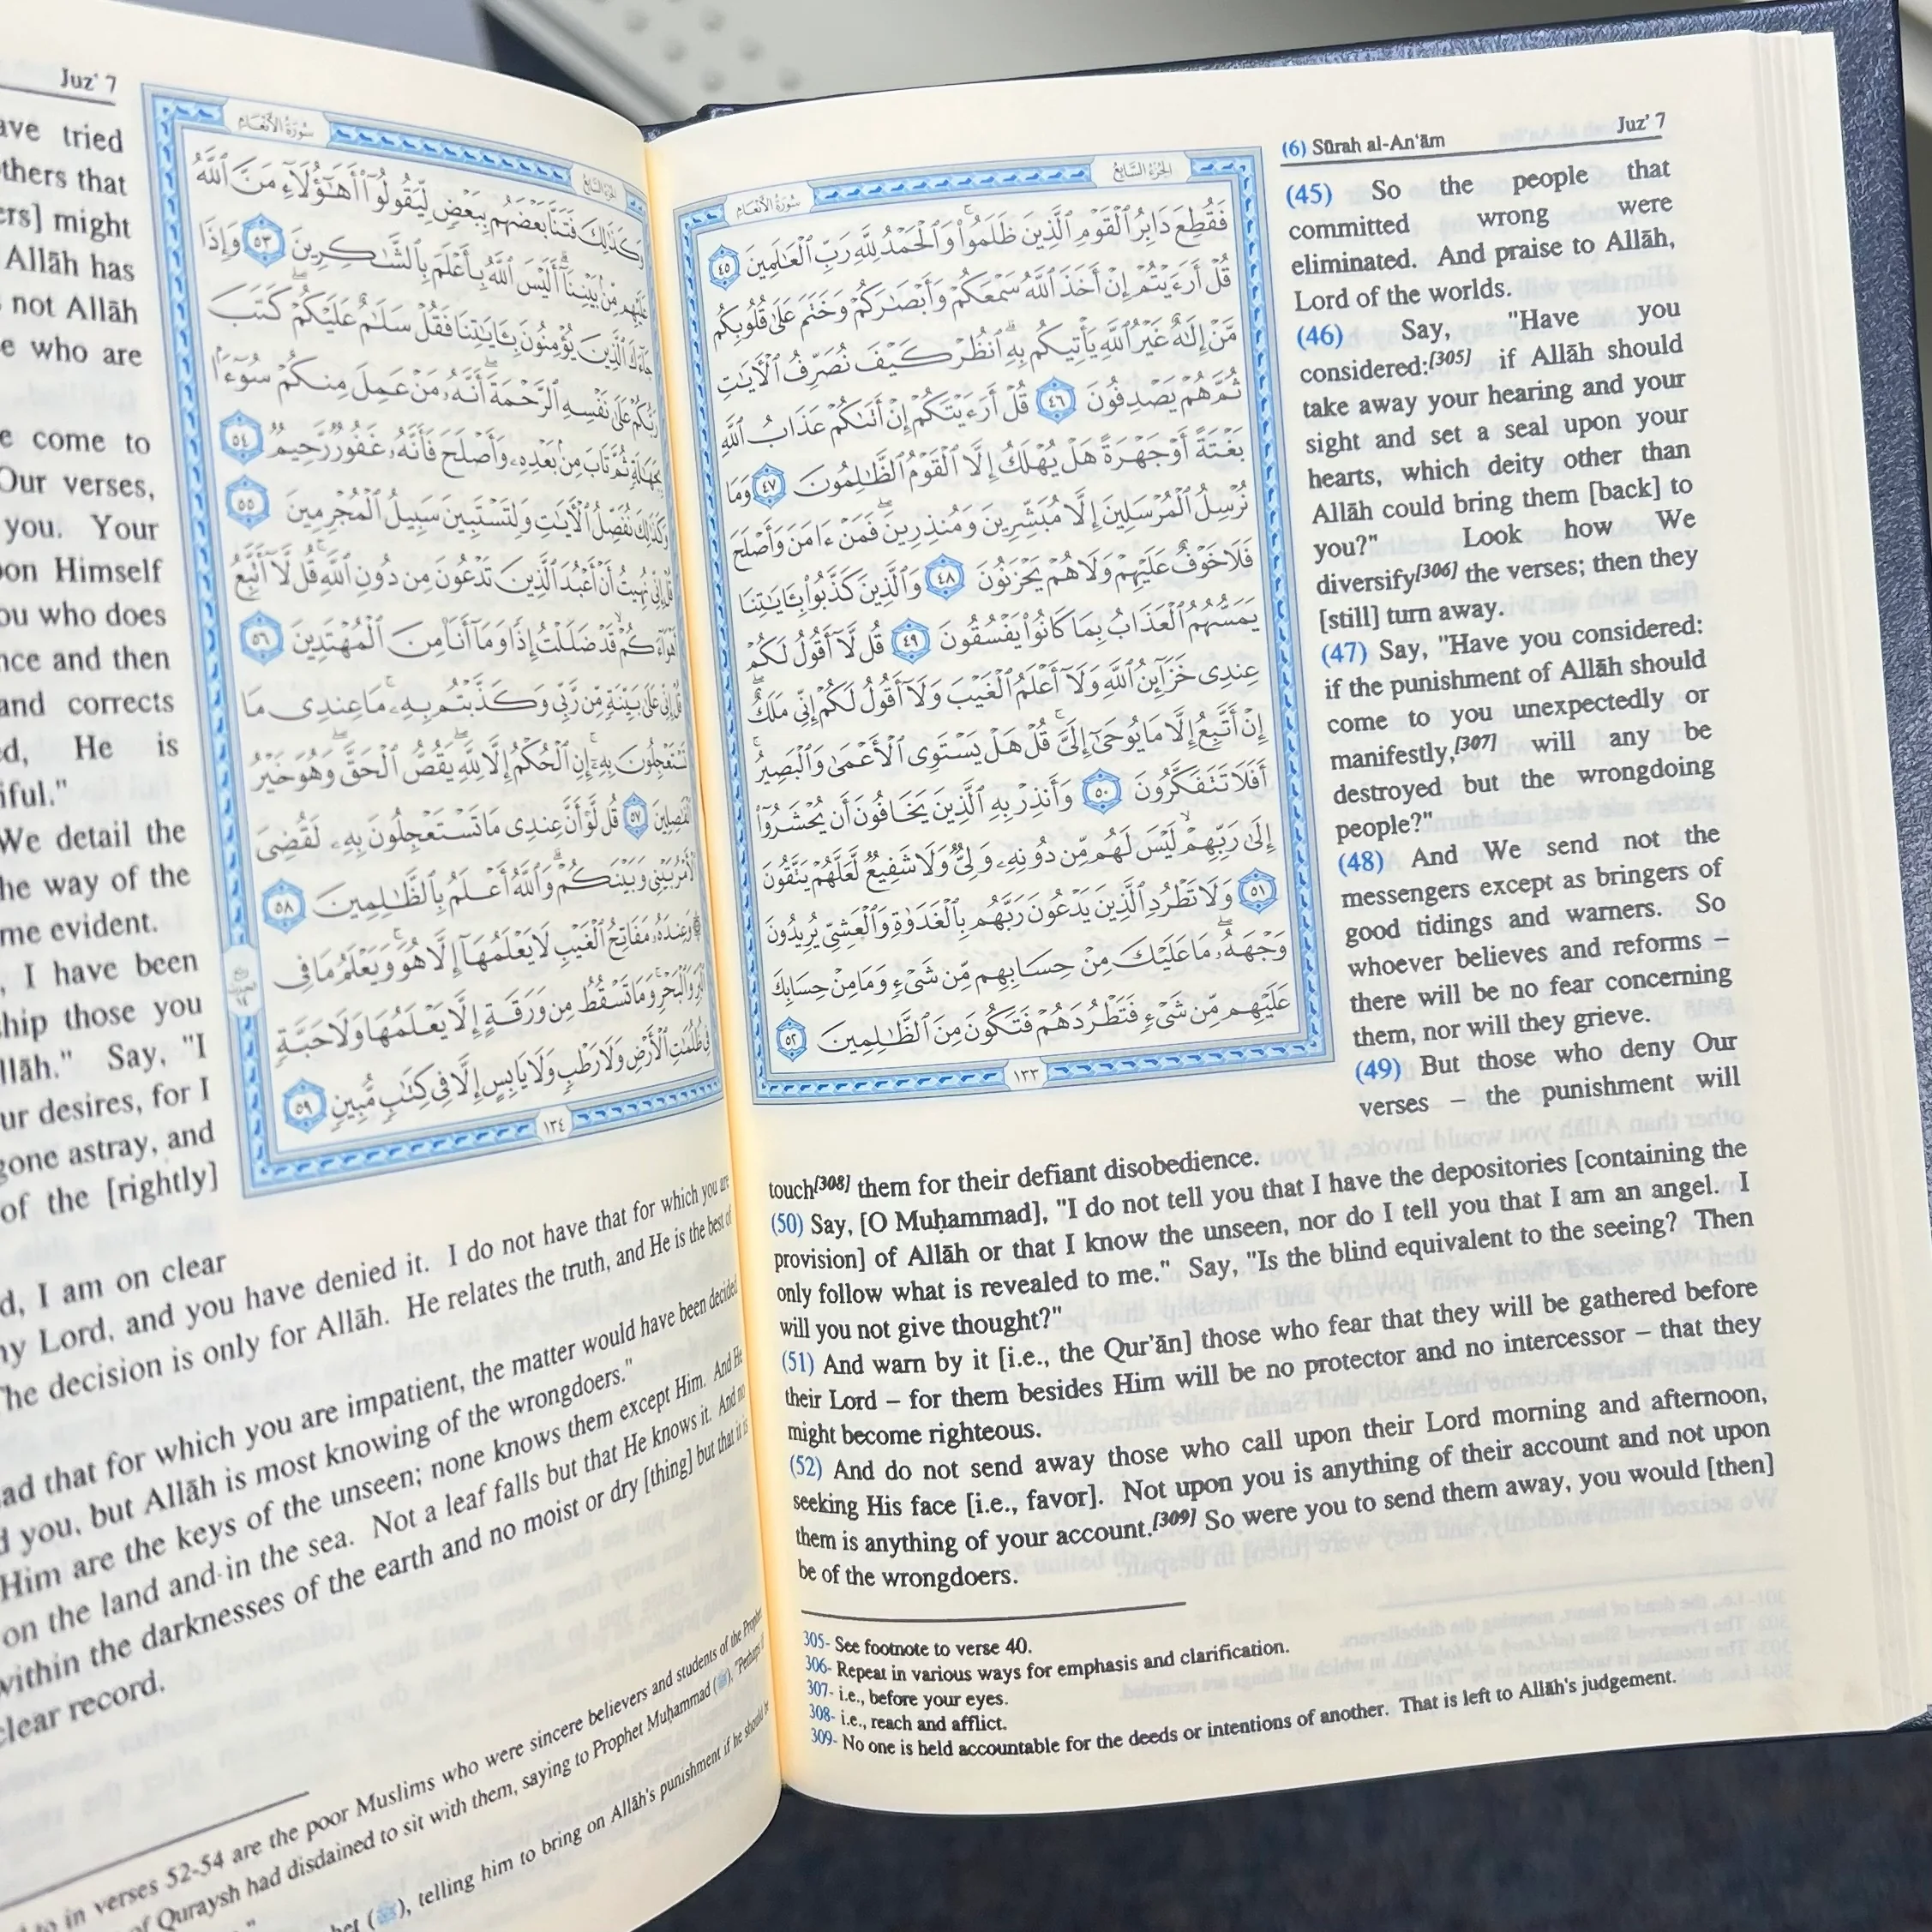 (6) Sūrah al-An‘ām
Juz’ 7
الجُزْءُ السَّابِعُ
سُورَةُ الأَنْعَامِ
فَقُطِعَ دَابِرُ ٱلْقَوْمِ ٱلَّذِينَ ظَلَمُوا۟ ۚ وَٱلْحَمْدُ لِلَّهِ رَبِّ ٱلْعَـٰلَمِينَ ٤٥
قُلْ أَرَءَيْتُمْ إِنْ أَخَذَ ٱللَّهُ سَمْعَكُمْ وَأَبْصَـٰرَكُمْ وَخَتَمَ عَلَىٰ قُلُوبِكُم
مَّنْ إِلَـٰهٌ غَيْرُ ٱللَّهِ يَأْتِيكُم بِهِ ۗ ٱنظُرْ كَيْفَ نُصَرِّفُ ٱلْـَٔايَـٰتِ
ثُمَّ هُمْ يَصْدِفُونَ ٤٦ قُلْ أَرَءَيْتَكُمْ إِنْ أَتَىٰكُمْ عَذَابُ ٱللَّهِ
بَغْتَةً أَوْ جَهْرَةً هَلْ يُهْلَكُ إِلَّا ٱلْقَوْمُ ٱلظَّـٰلِمُونَ ٤٧ وَمَا
نُرْسِلُ ٱلْمُرْسَلِينَ إِلَّا مُبَشِّرِينَ وَمُنذِرِينَ ۖ فَمَنْ ءَامَنَ وَأَصْلَحَ
فَلَا خَوْفٌ عَلَيْهِمْ وَلَا هُمْ يَحْزَنُونَ ٤٨ وَٱلَّذِينَ كَذَّبُوا۟ بِـَٔايَـٰتِنَا
يَمَسُّهُمُ ٱلْعَذَابُ بِمَا كَانُوا۟ يَفْسُقُونَ ٤٩ قُل لَّآ أَقُولُ لَكُمْ
عِندِى خَزَآئِنُ ٱللَّهِ وَلَآ أَعْلَمُ ٱلْغَيْبَ وَلَآ أَقُولُ لَكُمْ إِنِّى مَلَكٌ ۖ
إِنْ أَتَّبِعُ إِلَّا مَا يُوحَىٰٓ إِلَىَّ ۚ قُلْ هَلْ يَسْتَوِى ٱلْأَعْمَىٰ وَٱلْبَصِيرُ ۚ
أَفَلَا تَتَفَكَّرُونَ ٥٠ وَأَنذِرْ بِهِ ٱلَّذِينَ يَخَافُونَ أَن يُحْشَرُوٓا۟
إِلَىٰ رَبِّهِمْ ۙ لَيْسَ لَهُم مِّن دُونِهِۦ وَلِىٌّ وَلَا شَفِيعٌ لَّعَلَّهُمْ يَتَّقُونَ
٥١ وَلَا تَطْرُدِ ٱلَّذِينَ يَدْعُونَ رَبَّهُم بِٱلْغَدَوٰةِ وَٱلْعَشِىِّ يُرِيدُونَ
وَجْهَهُۥ ۖ مَا عَلَيْكَ مِنْ حِسَابِهِم مِّن شَىْءٍ وَمَا مِنْ حِسَابِكَ
عَلَيْهِم مِّن شَىْءٍ فَتَطْرُدَهُمْ فَتَكُونَ مِنَ ٱلظَّـٰلِمِينَ ٥٢
١٣٣
(45) So the people that
committed wrong were
eliminated. And praise to Allāh,
Lord of the worlds.
(46) Say, "Have you
considered:[305] if Allāh should
take away your hearing and your
sight and set a seal upon your
hearts, which deity other than
Allāh could bring them [back] to
you?" Look how We
diversify[306] the verses; then they
[still] turn away.
(47) Say, "Have you considered:
if the punishment of Allāh should
come to you unexpectedly or
manifestly,[307] will any be
destroyed but the wrongdoing
people?"
(48) And We send not the
messengers except as bringers of
good tidings and warners. So
whoever believes and reforms –
there will be no fear concerning
them, nor will they grieve.
(49) But those who deny Our
verses – the punishment will
touch[308] them for their defiant disobedience.
(50) Say, [O Muḥammad], "I do not tell you that I have the depositories [containing the
provision] of Allāh or that I know the unseen, nor do I tell you that I am an angel. I
only follow what is revealed to me." Say, "Is the blind equivalent to the seeing? Then
will you not give thought?"
(51) And warn by it [i.e., the Qur’ān] those who fear that they will be gathered before
their Lord – for them besides Him will be no protector and no intercessor – that they
might become righteous.
(52) And do not send away those who call upon their Lord morning and afternoon,
seeking His face [i.e., favor]. Not upon you is anything of their account and not upon
them is anything of your account.[309] So were you to send them away, you would [then]
be of the wrongdoers.
305- See footnote to verse 40.
306- Repeat in various ways for emphasis and clarification.
307- i.e., before your eyes.
308- i.e., reach and afflict.
309- No one is held accountable for the deeds or intentions of another. That is left to Allāh's judgement.
Juz’ 7
الجُزْءُ السَّابِعُ
سُورَةُ الأَنْعَامِ
وَكَذَٰلِكَ فَتَنَّا بَعْضَهُم بِبَعْضٍ لِّيَقُولُوٓا۟ أَهَـٰٓؤُلَآءِ مَنَّ ٱللَّهُ
عَلَيْهِم مِّنۢ بَيْنِنَآ ۗ أَلَيْسَ ٱللَّهُ بِأَعْلَمَ بِٱلشَّـٰكِرِينَ ٥٣ وَإِذَا
جَآءَكَ ٱلَّذِينَ يُؤْمِنُونَ بِـَٔايَـٰتِنَا فَقُلْ سَلَـٰمٌ عَلَيْكُمْ ۖ كَتَبَ
رَبُّكُمْ عَلَىٰ نَفْسِهِ ٱلرَّحْمَةَ ۖ أَنَّهُۥ مَنْ عَمِلَ مِنكُمْ سُوٓءًۢا
بِجَهَـٰلَةٍ ثُمَّ تَابَ مِنۢ بَعْدِهِۦ وَأَصْلَحَ فَأَنَّهُۥ غَفُورٌ رَّحِيمٌ ٥٤
وَكَذَٰلِكَ نُفَصِّلُ ٱلْـَٔايَـٰتِ وَلِتَسْتَبِينَ سَبِيلُ ٱلْمُجْرِمِينَ ٥٥
قُلْ إِنِّى نُهِيتُ أَنْ أَعْبُدَ ٱلَّذِينَ تَدْعُونَ مِن دُونِ ٱللَّهِ ۚ قُل لَّآ أَتَّبِعُ
أَهْوَآءَكُمْ ۙ قَدْ ضَلَلْتُ إِذًا وَمَآ أَنَا۠ مِنَ ٱلْمُهْتَدِينَ ٥٦
قُلْ إِنِّى عَلَىٰ بَيِّنَةٍ مِّن رَّبِّى وَكَذَّبْتُم بِهِۦ ۚ مَا عِندِى مَا
تَسْتَعْجِلُونَ بِهِۦٓ ۚ إِنِ ٱلْحُكْمُ إِلَّا لِلَّهِ ۖ يَقُصُّ ٱلْحَقَّ ۖ وَهُوَ خَيْرُ
ٱلْفَـٰصِلِينَ ٥٧ قُل لَّوْ أَنَّ عِندِى مَا تَسْتَعْجِلُونَ بِهِۦ لَقُضِىَ
ٱلْأَمْرُ بَيْنِى وَبَيْنَكُمْ ۗ وَٱللَّهُ أَعْلَمُ بِٱلظَّـٰلِمِينَ ٥٨
۞ وَعِندَهُۥ مَفَاتِحُ ٱلْغَيْبِ لَا يَعْلَمُهَآ إِلَّا هُوَ ۚ وَيَعْلَمُ مَا فِى
ٱلْبَرِّ وَٱلْبَحْرِ ۚ وَمَا تَسْقُطُ مِن وَرَقَةٍ إِلَّا يَعْلَمُهَا وَلَا حَبَّةٍ
فِى ظُلُمَـٰتِ ٱلْأَرْضِ وَلَا رَطْبٍ وَلَا يَابِسٍ إِلَّا فِى كِتَـٰبٍ مُّبِينٍ ٥٩
١٣٤
ave tried
thers that
ers] might
Allāh has
not Allāh
e who are
e come to
Our verses,
you. Your
on Himself
ou who does
nce and then
and corrects
ed, He is
iful."
We detail the
he way of the
me evident.
, I have been
hip those you
llāh." Say, "I
ur desires, for I
gone astray, and
of the [rightly]
d, I am on clear
ny Lord, and you have denied it. I do not have that for which you are
The decision is only for Allāh. He relates the truth, and He is the best of
ad that for which you are impatient, the matter would have been decided
d you, but Allāh is most knowing of the wrongdoers."
Him are the keys of the unseen; none knows them except Him. And He
on the land and in the sea. Not a leaf falls but that He knows it. And no
within the darknesses of the earth and no moist or dry [thing] but that it is
clear record.
to in verses 52-54 are the poor Muslims who were sincere believers and students of the Prophet
of Quraysh had disdained to sit with them, saying to Prophet Muḥammad (ﷺ), "Perhaps if
het (ﷺ), telling him to bring on Allāh's punishment if he should be